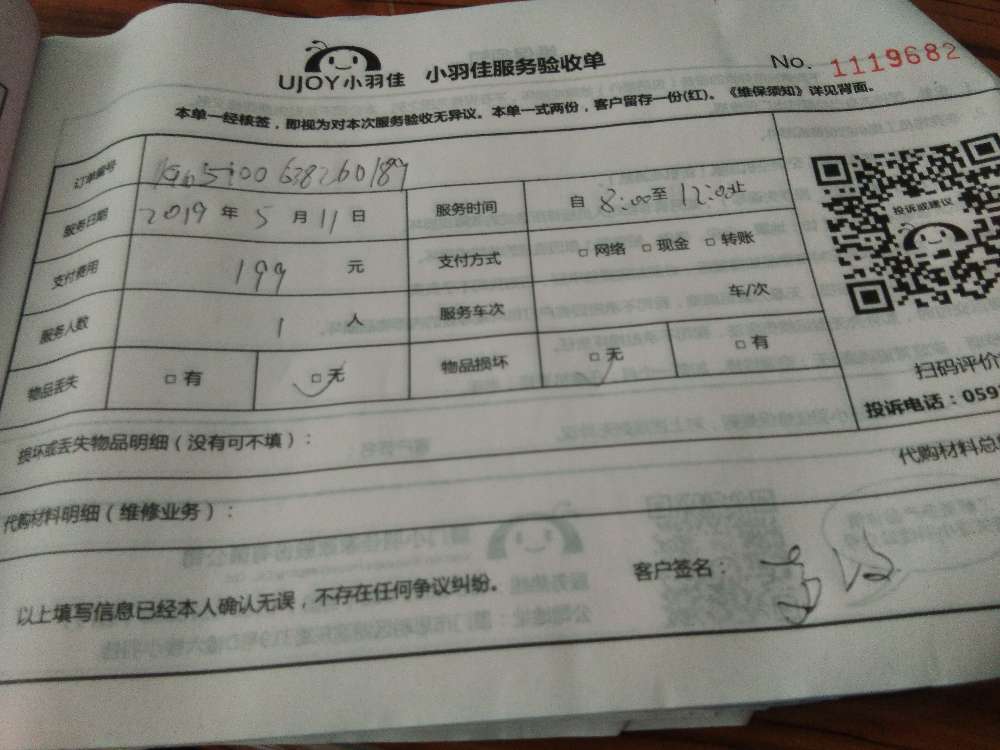 UJOY小羽佳 小羽佳服务验收单 No. 1119682
本单一经核签，即视为对本次服务验收无异议。本单一式两份，客户留存一份(红)。《维保须知》详见背面。
订单编号
服务日期 2019 年 5 月 11 日 服务时间 自 8:00 至 12:00 止
支付费用 199 元 支付方式 □ 网络 □ 现金 □ 转账
服务人数 1 人 服务车次 车/次
物品丢失 □ 有 □ 无 物品损坏 □ 无 □ 有
投诉或建议
扫码评价
投诉电话：059
损坏或丢失物品明细（没有可不填）：
代购材料明细（维修业务）： 代购材料总
以上填写信息已经本人确认无误，不存在任何争议纠纷。 客户签名：